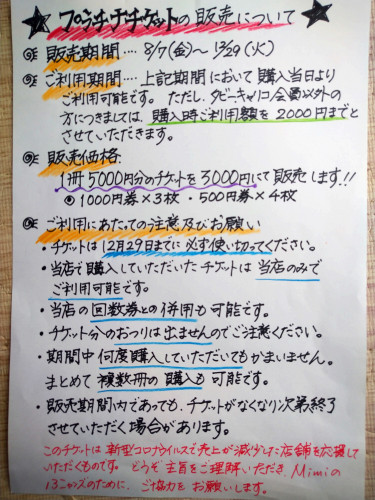 プラチナチケットの販売について
販売期間‥‥8/7(金)〜12/29(火)
ご利用期間‥‥上記期間において購入当日より
ご利用可能です。ただし、タビー、キャリコ会員以外の
方につきましては、購入時ご利用額を2000円までと
させていただきます。
販売価格:
1冊5000円分のチケットを3000円にて販売します!!
◉1000円券×3枚・500円券×4枚
ご利用にあたっての注意及びお願い
・チケットは12月29日までに必ず使い切ってください。
・当店で購入していただいたチケットは当店のみで
ご利用可能です。
・当店の回数券との併用も可能です。
・チケット分のおつりは出ませんのでご注意ください。
・期間中何度購入していただいてもかまいません。
まとめて複数冊の購入も可能です。
・販売期間内であっても、チケットがなくなり次第終了
させていただく場合があります。
このチケットは新型コロナウイルスで売上が減少した店舗を応援し
ていただくものです。どうぞ主旨をご理解いただきMimiの
13ニャンズのために、ご協力をお願いします。